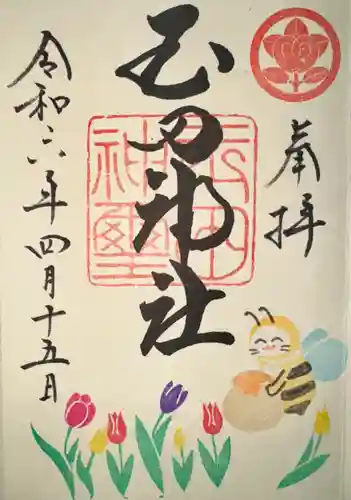 奉拝
玉田神社
玉田
神璽
令和六年四月十五日